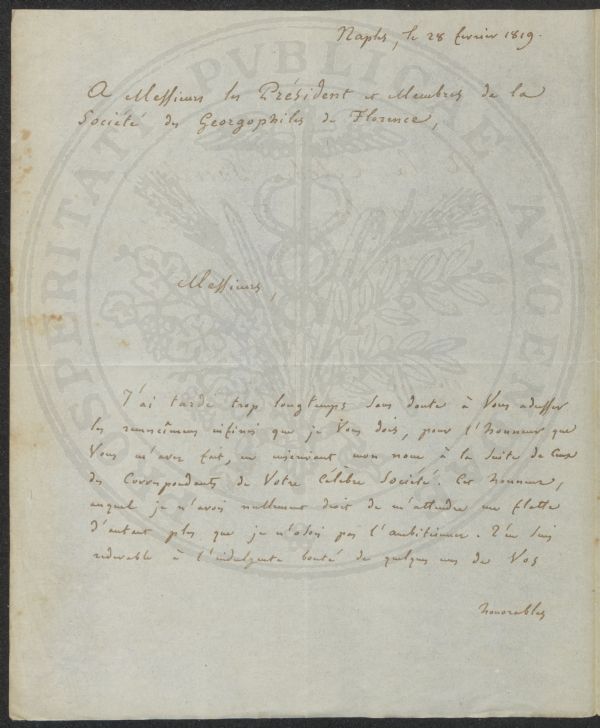 Naples, le 28 fevrier 1819.
A Messieurs les Président et Membres de la
Société des Georgophiles de Florence,
Messieurs,
J'ai tardé trop longtemps sans doute à Vous adresser
les remercîmens infinis que je Vous dois, pour l'honneur que
Vous m'avez fait, en inscrivant mon nom à la suite de Ceux
des Correspondants de Votre Célèbre Société. Cet honneur,
auquel je n'avois nullement droit de m'attendre me flatte
d'autant plus que je n'osois pas l'ambitionner. J'en suis
redevable à l'indulgente bonté de quelques uns de Vos
honorables
PROSPERITATI PVBLICAE AVGENDAE